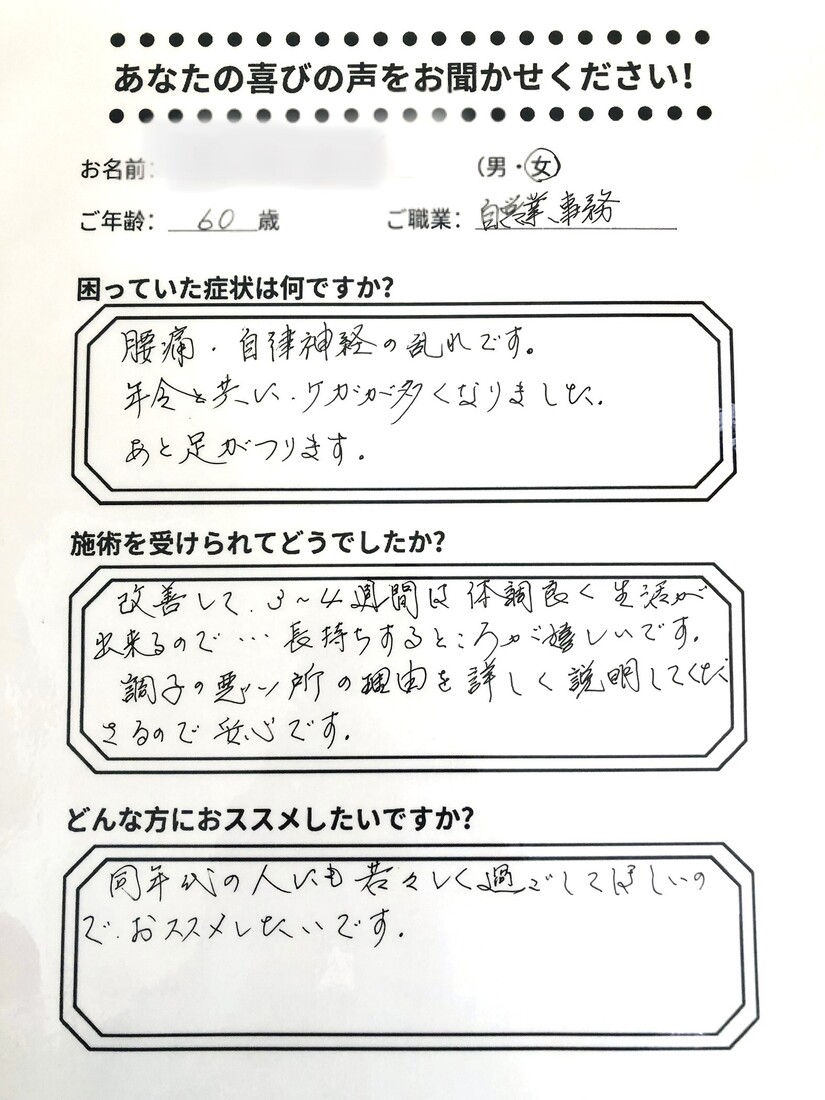 あなたの喜びの声をお聞かせください!
お名前: (男・女)
ご年齢: 60 歳 ご職業: 自営業、事務
困っていた症状は何ですか?
腰痛・自律神経の乱れです。
年令と共に、ケガが多くなりました。
あと足がつります。
施術を受けられてどうでしたか?
改善して、3〜4週間は体調良く生活が
出来るので…長持ちするところが嬉しいです。
調子の悪い所の理由を詳しく説明してくだ
さるので安心です。
どんな方におススメしたいですか?
同年代の人にも若々しく過ごしてほしいの
で、おススメしたいです。